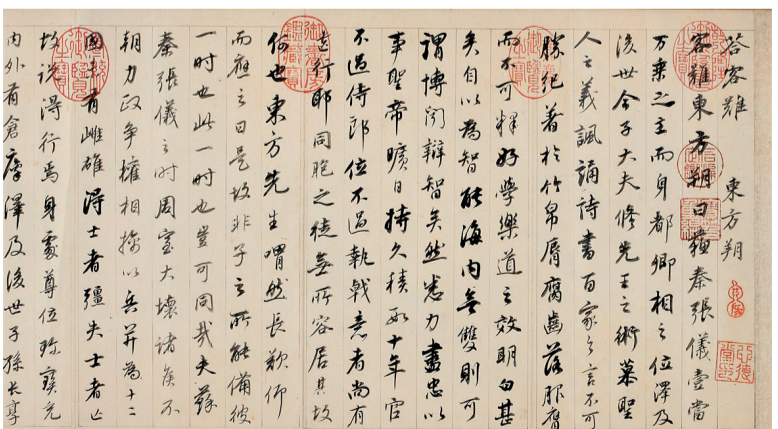 答客難
東方朔
客難東方朔曰蘇秦張儀壹當
万乘之主而身都卿相之位澤及
後世今子大夫修先王之術慕聖
人之義諷誦詩書百家之言不可
勝紀著於竹帛脣腐齒落服膺
而不可釋好學樂道之效明白甚
矣自以為智能海內無雙則可
謂博聞辯智矣然悉力盡忠以
事聖帝曠日持久積數十年官
不過侍郎位不過執戟意者尚有
遺行耶同胞之徒無所容居其故
何也東方先生喟然長歎仰
而應之曰是故非子之所能備彼
一時也此一時也豈可同哉夫蘇
秦張儀之時周室大壞諸侯不
朝力政爭權相擒以兵并為十二
國未有雌雄得士者彊失士者亡
故說得行焉身處尊位珍寶充
內外有倉廩澤及後世子孫長享